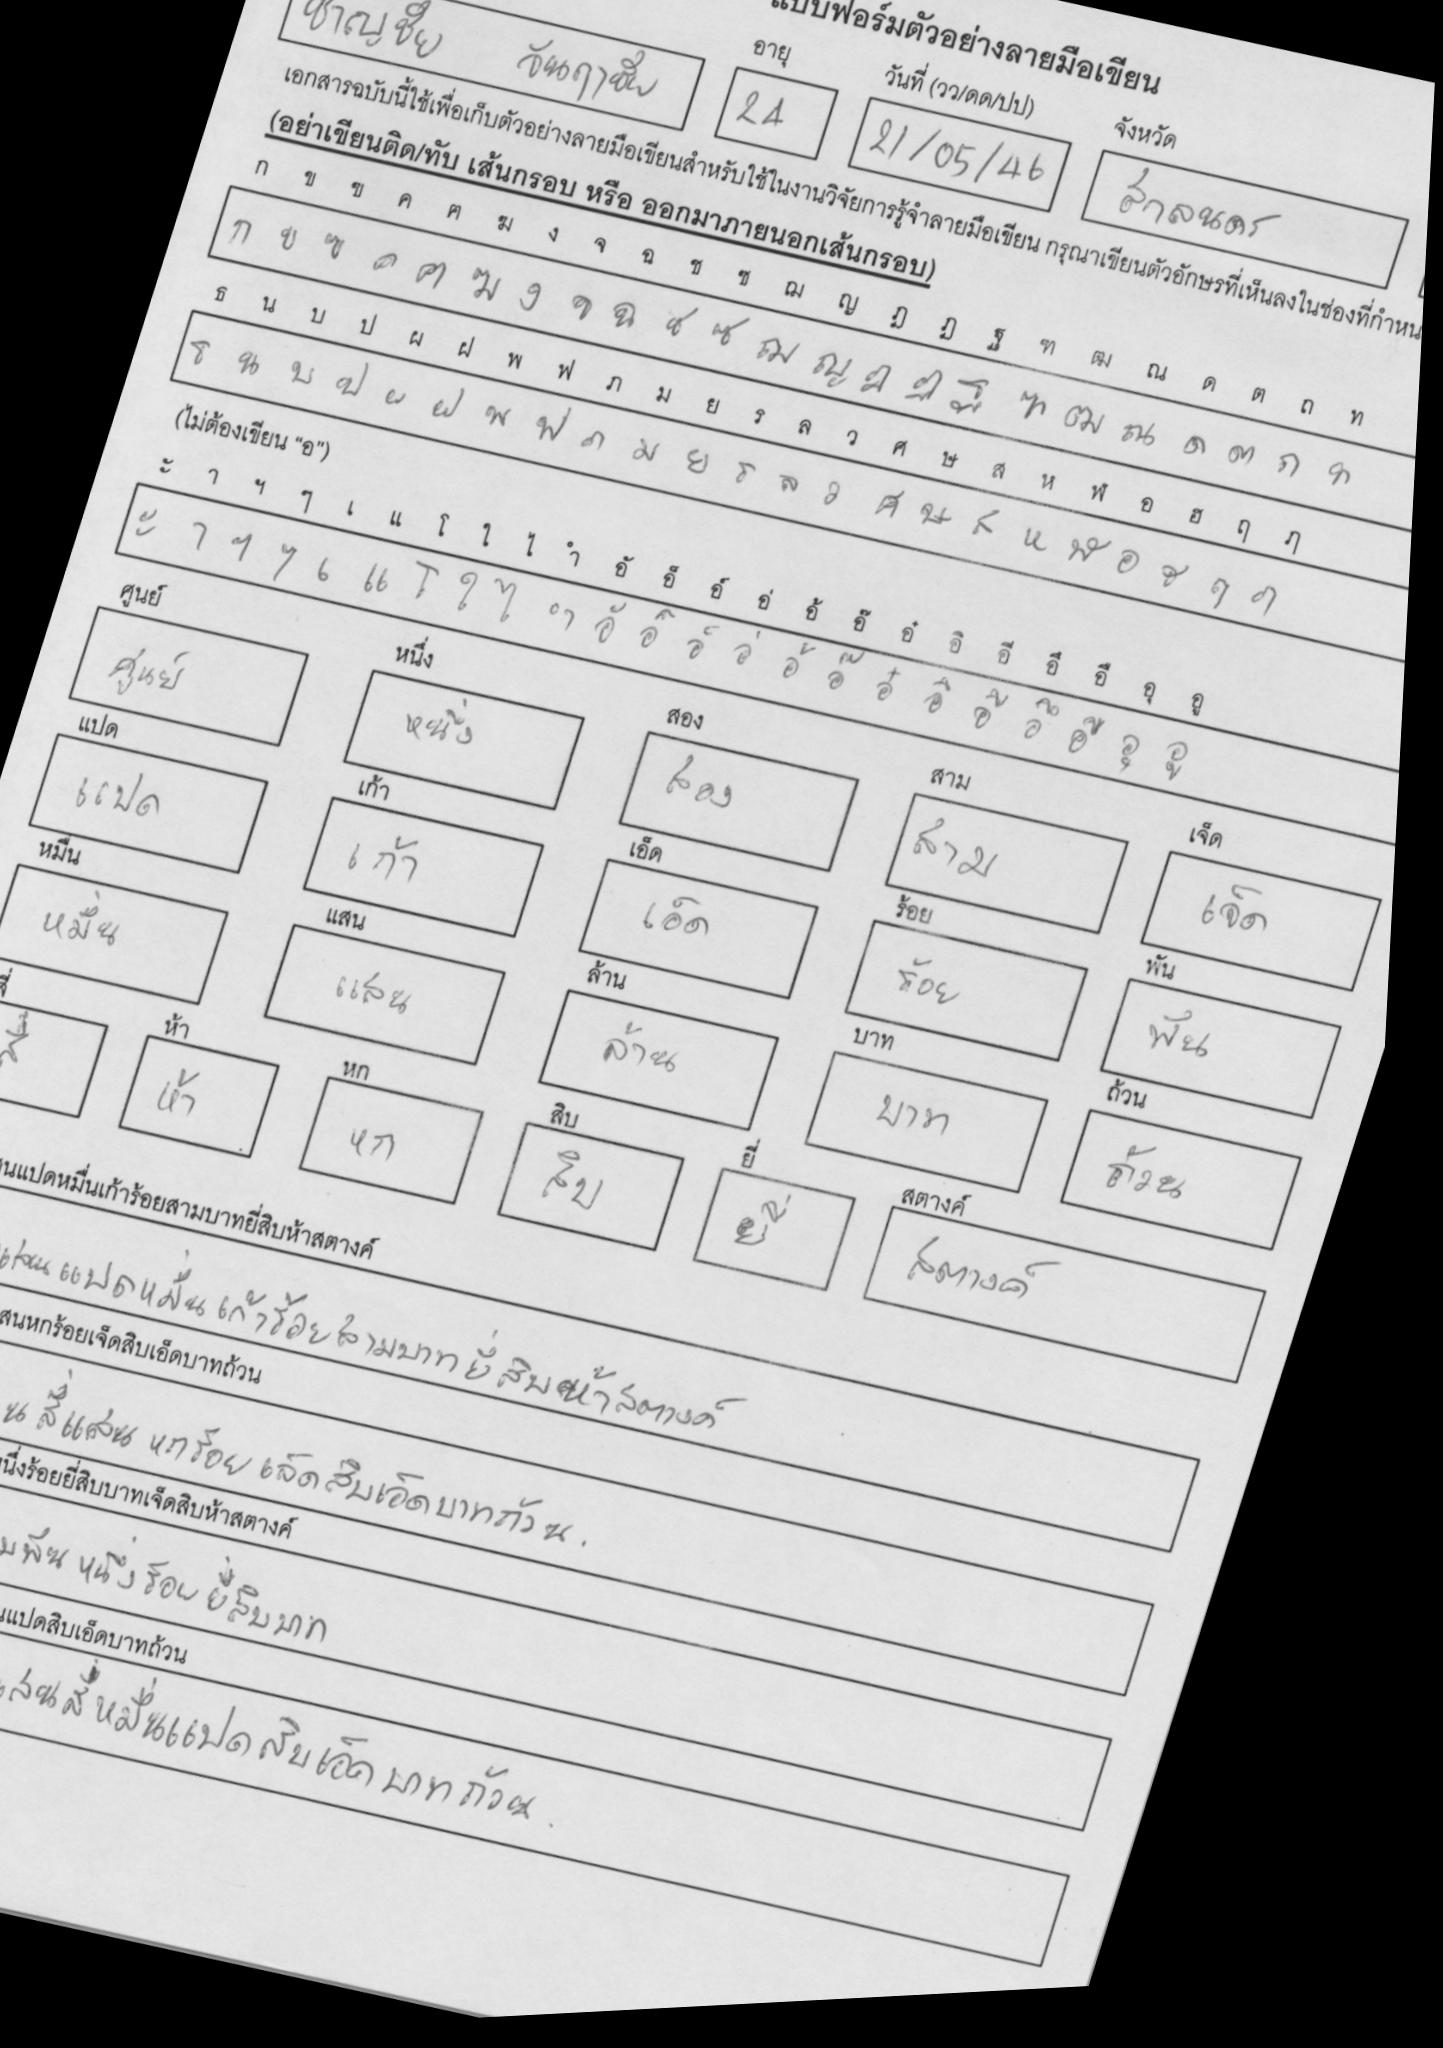 แบบฟอร์มตัวอย่างลายมือเขียน
อายุ วันที่ (วว/ดด/ปป) จังหวัด
ชาญชัย 24 21/05/46 สกลนคร
เอกสารฉบับนี้ใช้เพื่อเก็บตัวอย่างลายมือเขียนสำหรับใช้ในงานวิจัยการรู้จำลายมือเขียน กรุณาเขียนตัวอักษรที่เห็นลงในช่องที่กำหน
(อย่าเขียนติด/ทับ เส้นกรอบ หรือ ออกมาภายนอกเส้นกรอบ)
ก ข ฃ ค ฅ ฆ ง จ ฉ ช ซ ฌ ญ ฎ ฏ ฐ ฑ ฒ ณ ด ต ถ ท
ก ข ฃ ค ฅ ฆ ง จ ฉ ช ซ ฌ ญ ฎ ฏ ฐ ฑ ฒ ณ ด ต ถ ท
ธ น บ ป ผ ฝ พ ฟ ภ ม ย ร ล ว ศ ษ ส ห ฬ อ ฮ ฤ ฦ
ธ น บ ป ผ ฝ พ ฟ ภ ม ย ร ล ว ศ ษ ส ห ฬ อ ฮ ฤ ฦ
(ไม่ต้องเขียน “อ”)
ะ า ฯ ๆ เ แ โ ใ ไ ำ อั อ็ อ์ อ่ อ้ อ๊ อ๋ อิ อี อึ อื อุ อู
ะ า ฯ ๆ เ แ โ ใ ไ ำ อั อ็ อ์ อ่ อ้ อ๊ อ๋ อิ อี อึ อื อุ อู
ศูนย์ หนึ่ง สอง สาม เจ็ด
ศูนย์ หนึ่ง สอง สาม เจ็ด
แปด เก้า เอ็ด ร้อย พัน
แปด เก้า เอ็ด ร้อย พัน
หมื่น แสน ล้าน บาท ถ้วน
หมื่น แสน ล้าน บาท ถ้วน
สี่ ห้า หก สิบ ยี่ สตางค์
สี่ ห้า หก สิบ ยี่ สตางค์
นแปดหมื่นเก้าร้อยสามบาทยี่สิบห้าสตางค์
แสนแปดหมื่นเก้าร้อยสามบาทยี่สิบห้าสตางค์
สนหกร้อยเจ็ดสิบเอ็ดบาทถ้วน
น สี่แสน หกร้อย เจ็ดสิบเอ็ดบาทถ้วน.
นึ่งร้อยยี่สิบบาทเจ็ดสิบห้าสตางค์
มพัน หนึ่งร้อย ยี่สิบบาท
นแปดสิบเอ็ดบาทถ้วน
แสนสี่หมื่นแปดสิบเอ็ดบาทถ้วน.